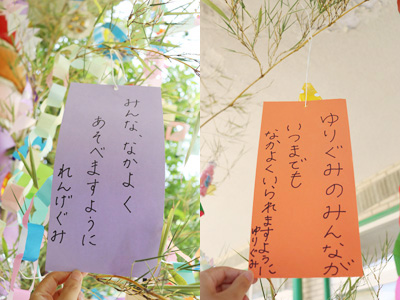 みんな、なかよく
あそべますように
れんげぐみ
ゆりぐみのみんなが
いつまでも
なかよくいられますように
ゆりぐみ